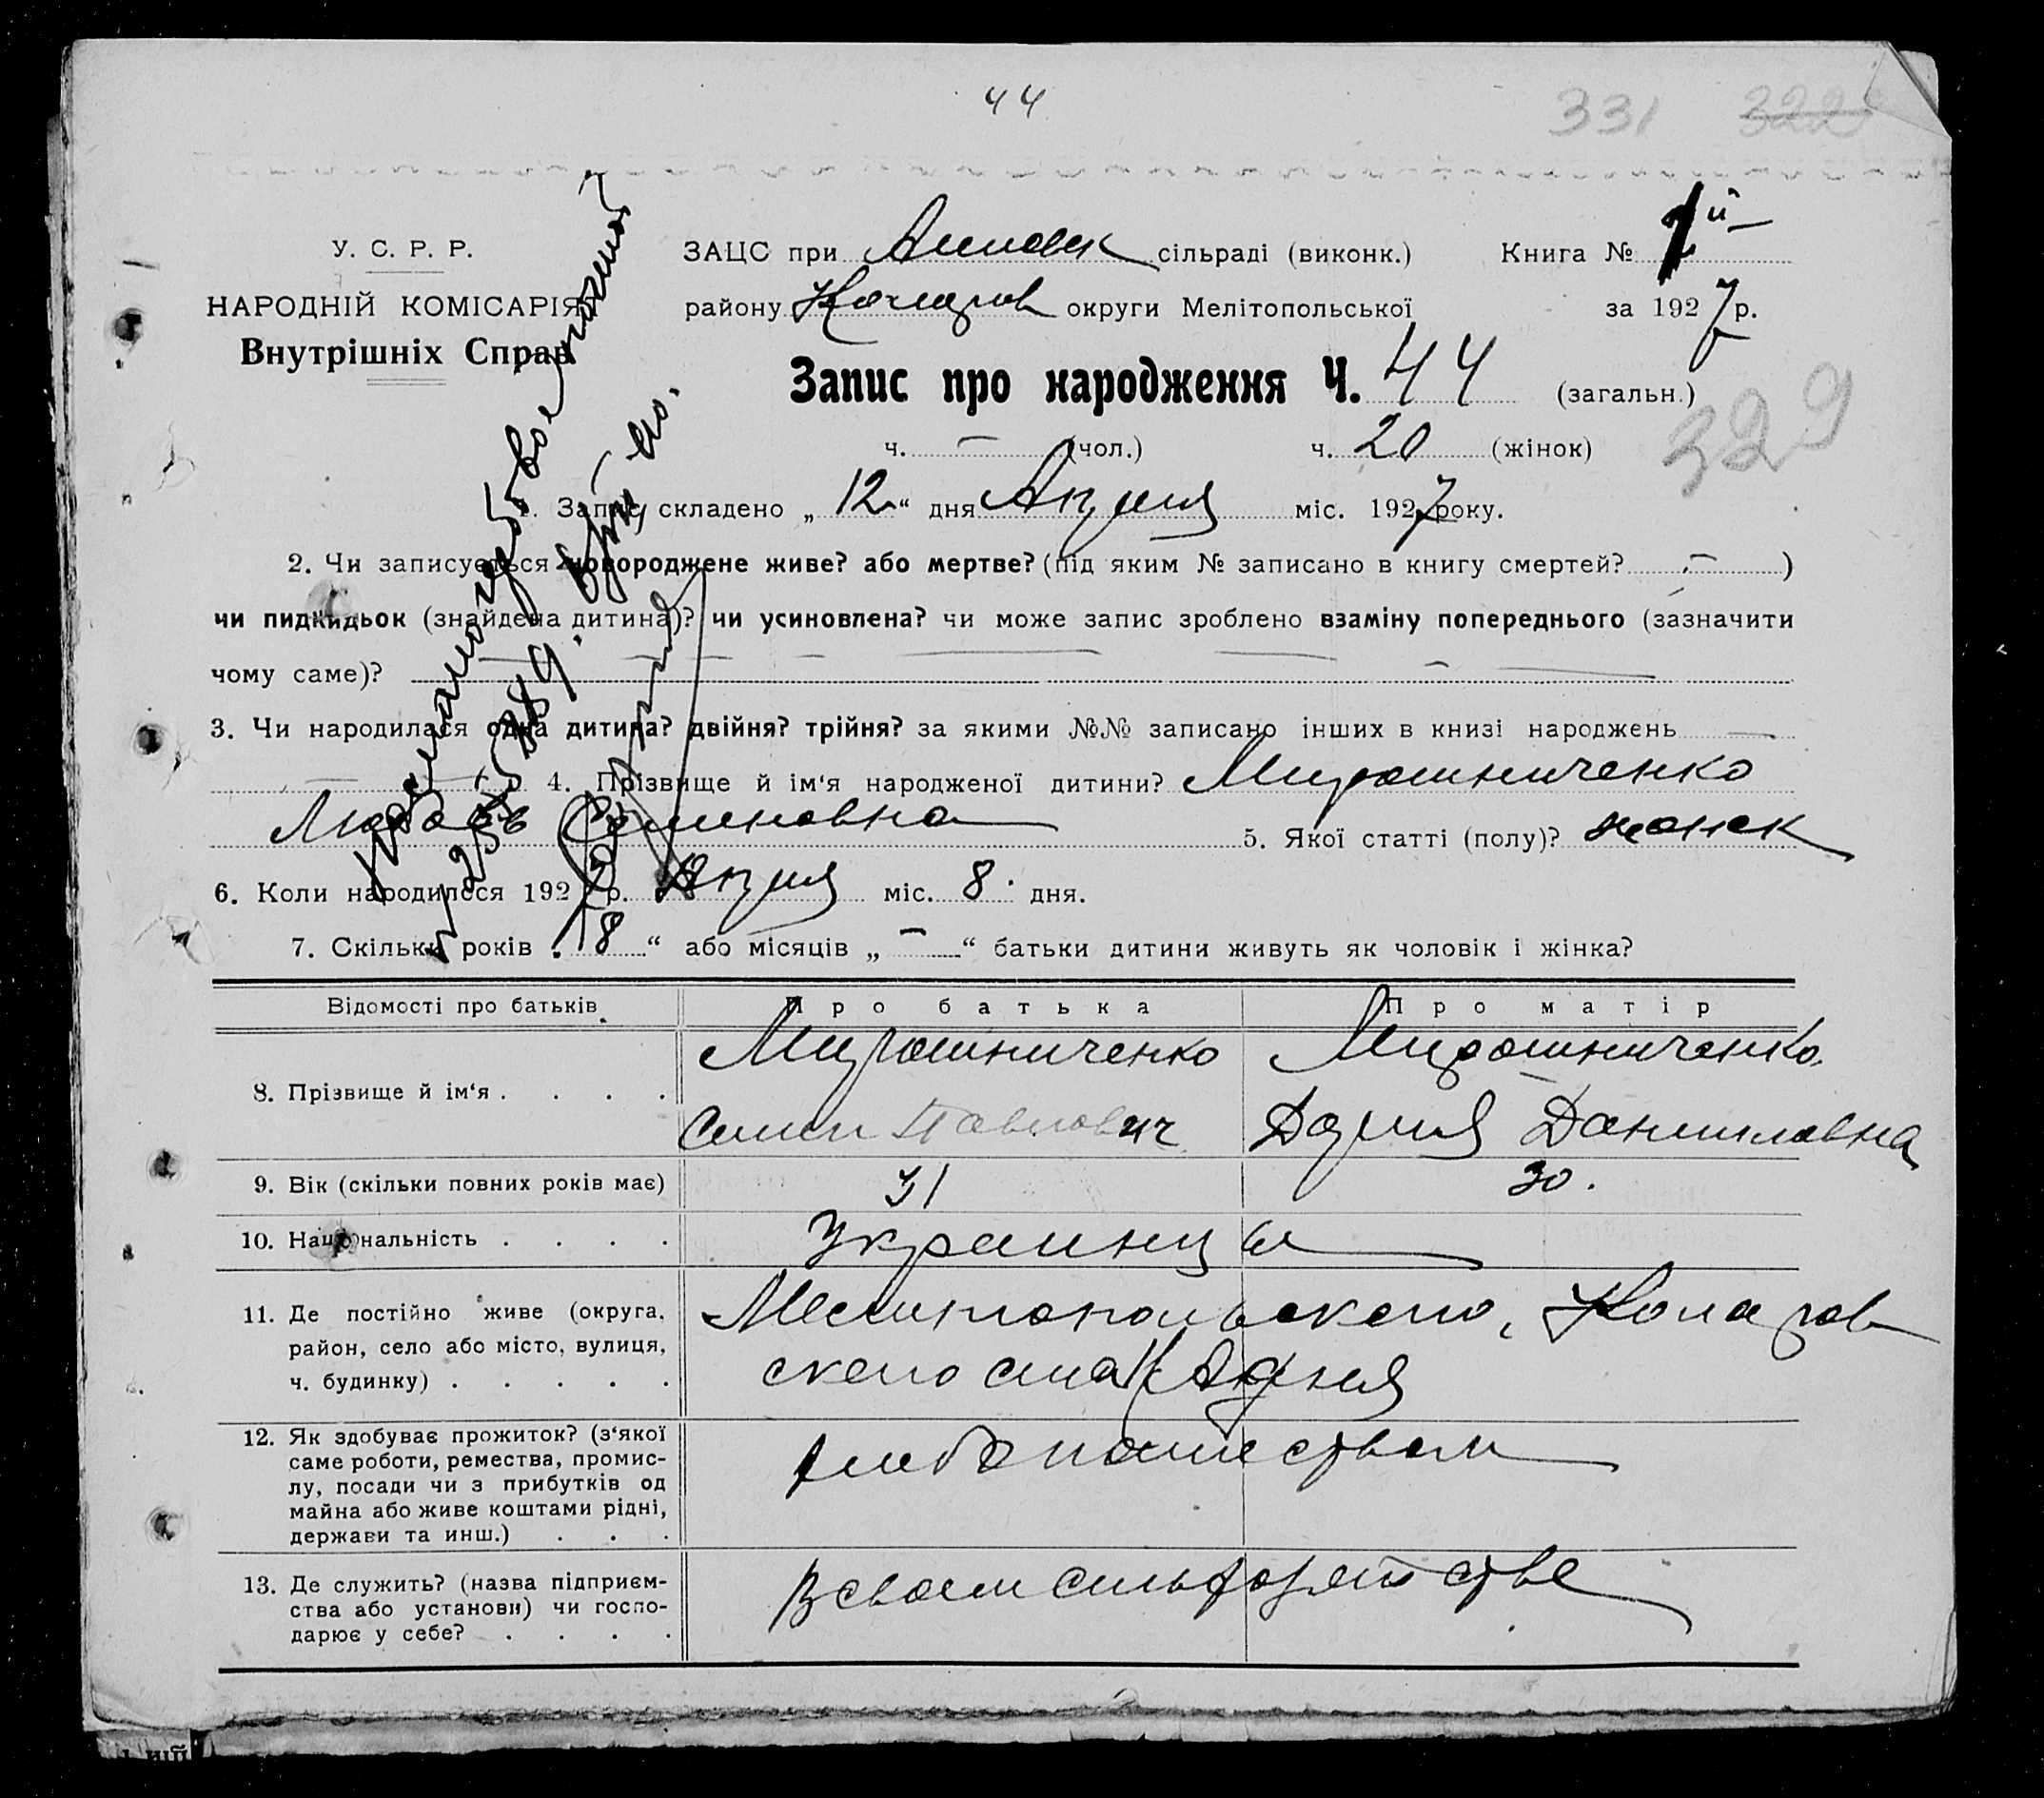 44
331 322
У. С. Р. Р.
НАРОДНІЙ КОМІСАРІЯТ
Внутрішніх Справ
ЗАЦС при сільраді (виконк.)
району округи Мелітопольської
Книга № 1й
за 1927 р.
Запис про народження Ч. 44 (загальн.)
329
ч. — (чол.) ч. 20 (жінок)
1. Запис складено „12“ дня Апреля міс. 1927 року.
2. Чи записується новороджене живе? або мертве? (під яким № записано в книгу смертей? — )
чи пидкидьок (знайдена дитина)? чи усиновлена? чи може запис зроблено взаміну попереднього (зазначити
чому саме)?
3. Чи народилася одна дитина? двійня? трійня? за якими №№ записано інших в книзі народжень —
4. Прізвище й ім‘я народженої дитини? Мирошниченко
Любовь Семеновна 5. Якої статті (полу)? женск
6. Коли народилося 1927 р. Апреля міс. 8 дня.
7. Скільки років „8“ або місяців „—“ батьки дитини живуть як чоловік і жінка?
Відомості про батьків Про батька Про матір
8. Прізвище й ім‘я . . . . Мирошниченко Мирошниченко
Семен Павлович Дария Даниловна
9. Вік (скільки повних років має) 31 30.
10. Національність . . . . Украинцы
11. Де постійно живе (округа,
район, село або місто, вулиця,
ч. будинку) . . . . .
Мелитопольского, Коларов
ского
12. Як здобуває прожиток? (з‘якої
саме роботи, ремества, промис-
лу, посади чи з прибутків од
майна або живе коштами рідні,
держави та инш.) . . .
хлебопашеством
13. Де служить? (назва підприєм-
ства або установи) чи госпо-
дарює у себе? . . . .
В своем сельхозяйстве